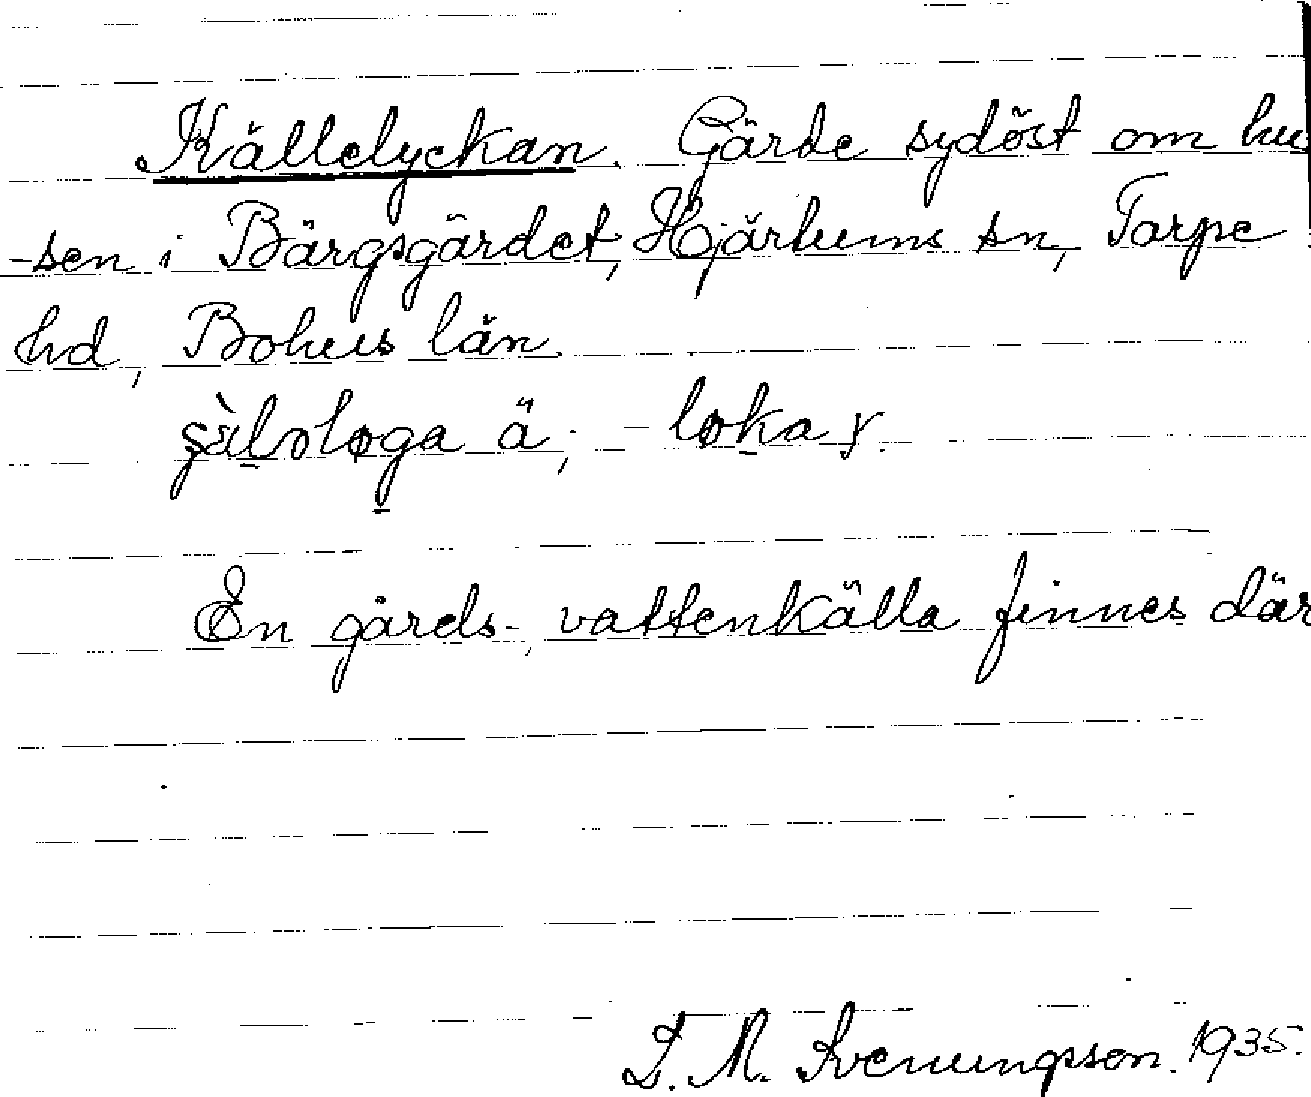 Källelyckan. Gärde sydöst om hu
-sen i Bärgsgärdet, Hjärtums sn, Torpe
hd, Bohus län.
En gårds-, vattenkälla finnes där
S. M. Svenungsson. 1935.